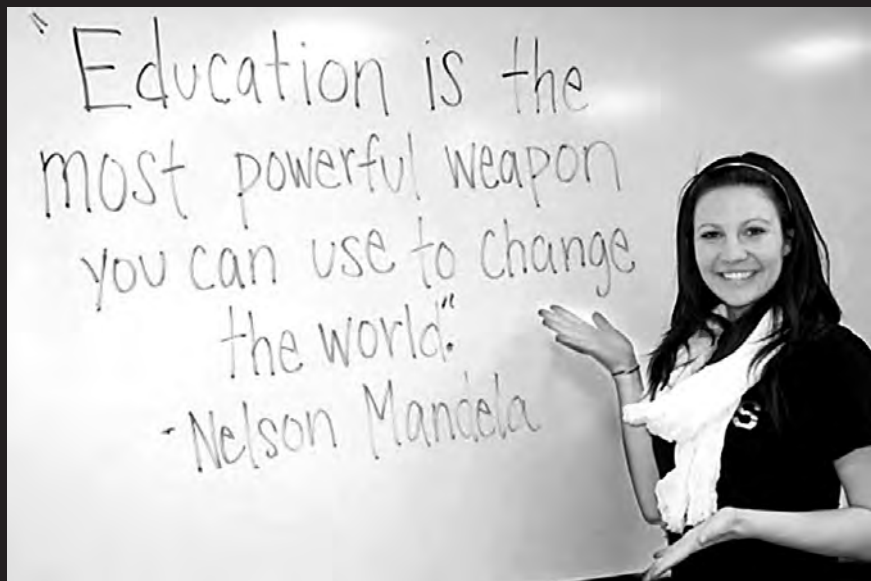 "Education is the
most powerful weapon
you can use to change
the world."
- Nelson Mandela
S